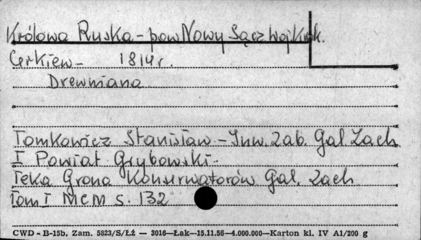 Królowa Ruska - pow Nowy Sącz woj Krak.
Cerkiew - 1814 r.
Drewniana
Tomkowicz Stanisław - Inw. Zab. Gal. Zach
I Powiat Grybowski.
Teka Grona Konserwatorów Gal. Zach
Tom I MCM s. 132
CWD - B-15b. Zam. 5823/S/ŁŻ — 3016—Łak—15.11.56—4.000.000—Karton kl. IV A1/200 g